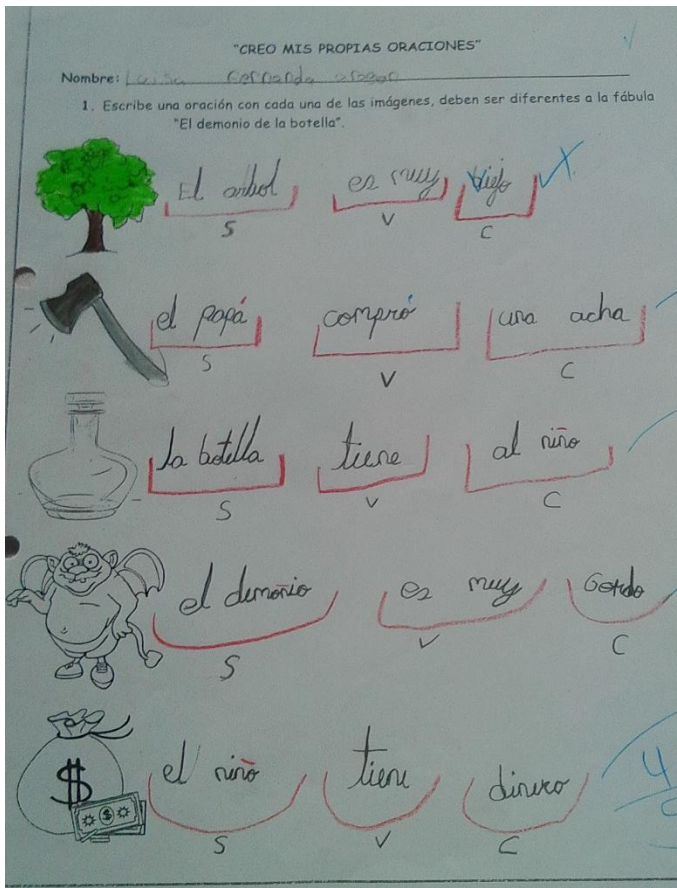 "CREO MIS PROPIAS ORACIONES"
Nombre: Luisa Fernanda
1. Escribe una oración con cada una de las imágenes, deben ser diferentes a la fábula
"El demonio de la botella".
El arbol es muy viejo
S V C
el papá compró una acha
S V C
la botella tiene al niño
S V C
el demoñio es muy Gordo
S V C
$
el niño tiene dinero
S V C
4